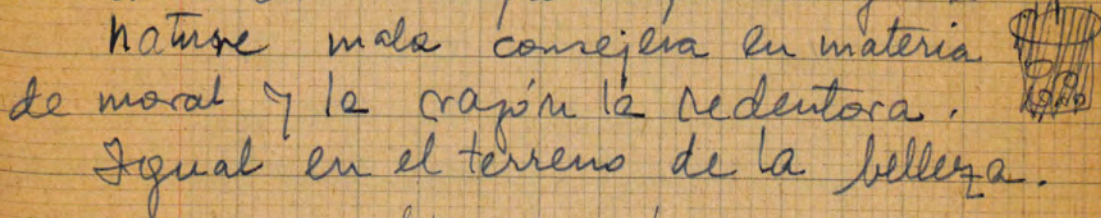 nature mala consejera en materia
de moral y la razón la redentora.
Igual en el terreno de la belleza.